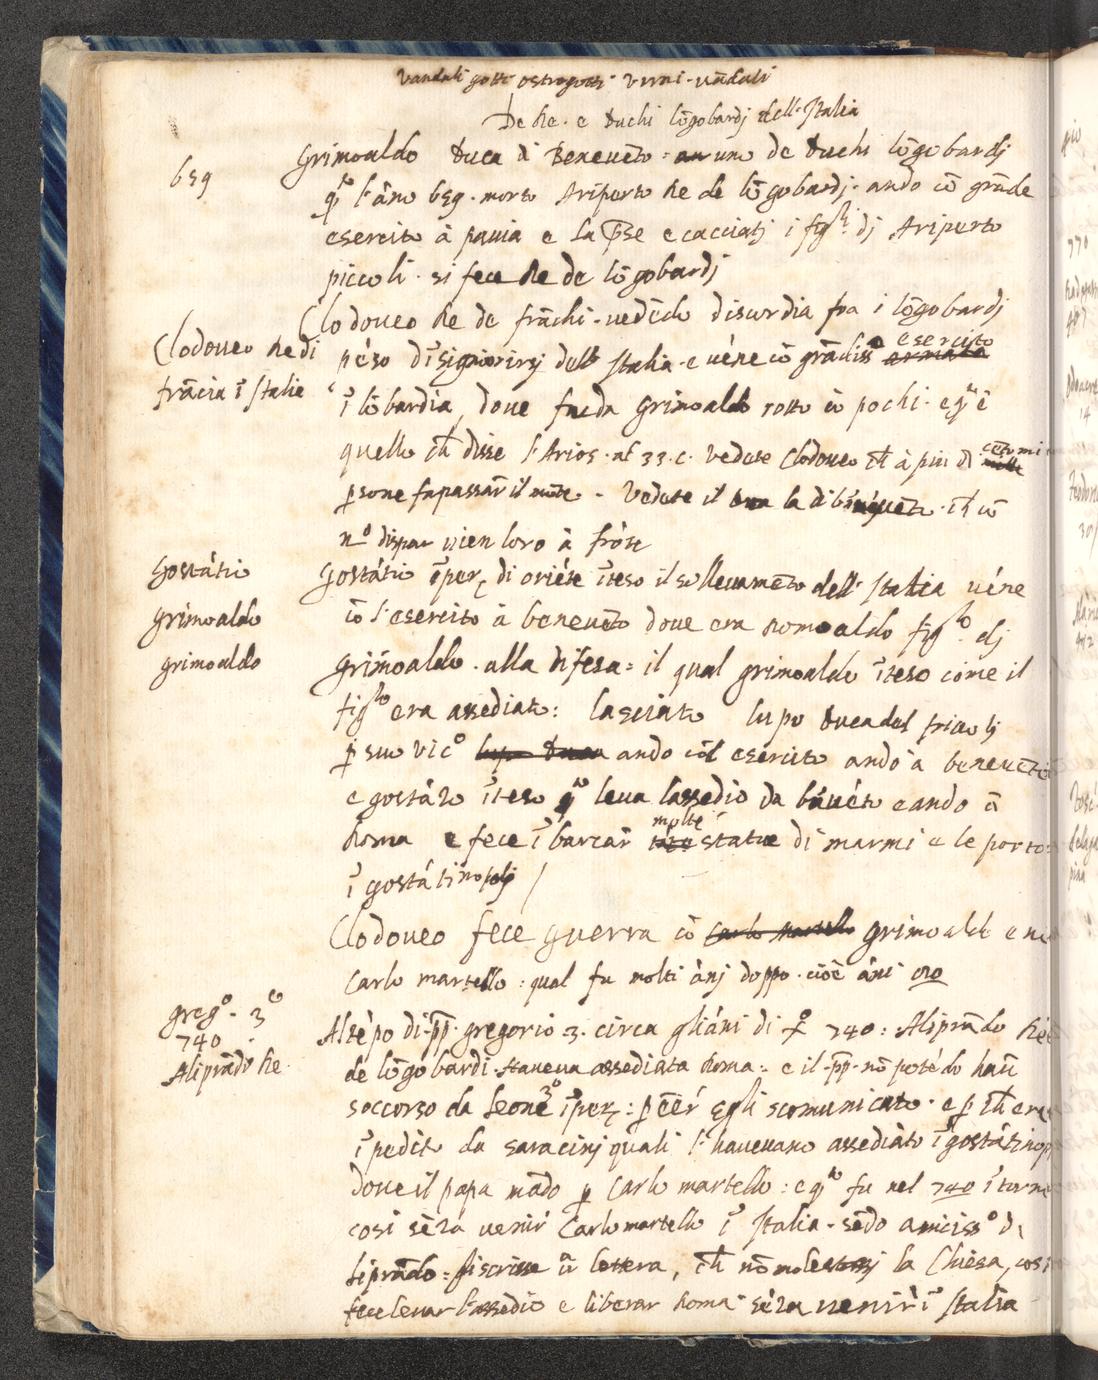 vandali gotti ostrogotti unni. uādali
De Re. e Duchi lōgobardj dell'Italia
659
Grimoaldo Duca di Beneuēto = uno de Duchi lōgobardj
qto l'āno 659. morto Ariperto Re de lōgobardj. andò cō grāde
esercito à pauia e la p̄se e cacciatj i figli dj Ariperto
piccoli. si fece Re de lōgobardj
Clodoueo Re di
frācia ī Italia
Clodoueo Re de frāchi. uedēdo discordia fra i lōgobardj
pēsò d'īsignorirsj dell Italia. e uēne cō grādisso esercito armata
ī lōbardia, doue fu da Grimoaldo rotto cō pochi. e qto ē
quello ch̄ disse l'Arios. al 33. c. Vedete Clodoueo ch̄ à piu dj cētomi mille
p̄sone fa passar il mōte. Vedete il la di bēneuēto. ch̄ cō
no dispar uien loro à frōte
Gostātio
grimoaldo
grimoaldo
Gostātio īper. di oriēte īteso il solleuamēto dell'Italia uēne
cō l'esercito à beneuēto doue era Romoaldo figlo. dj
Grimoaldo. alla difesa = il qual grimoaldo īteso come il
figlo era assediato: lasciato lupo Duca del friolj
p̄ suo vico lupo Duca andò col esercito andò à beneuēto
e gostāzo īteso qto leua lassedio da bāuēto e andò à
Roma e fece ībarcar molte statue di marmi e le porto
ī gostātinopolj
Clodoueo fece guerra cō Carlo Martello grimoaldo e nō
Carlo martello: qual fu molti ānj doppo. cioè āni
grego. 3o
740
Aliprādo Re
Al tēpo di. pp̄. gregorio 3. circa gli āni di 740: Aliprādo Re
de lōgobardi. staueua assediata Roma = e il. pp̄. nō potēdo hauer
soccorso da Leone 3o īper.: p̄ ēēr egli scomunicato. e p̄ ch̄ era
īpedito da saracinj quali l'haueuano assediato ī gostātinop
doue il papa mādò p̄ Carlo martello: e qto fu nel 740 ītorno
cosi sēza uenir Carlo martello ī Italia. sēdo amicisso di
liprādo = gli scrisse ūa lettera, ch̄ nō molestassj la Chiesa, cosi
fece leuar l'assedio e liberar Roma sēza uenir ī Italia